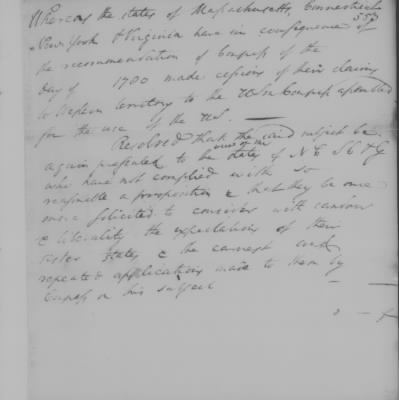 Whereas the states of Massachusetts, Connecticut
557
New York & Virginia have in consequence of
the recommendation of Congress of the
day of 1780 made cessions of their claims
to Western territory to the US in Congress assembled
for the use of the US. —
Resolved that the said subject be
again presented to the view of the states of N C S C & G
who have not complied with so
reasonable a proposition & that they be once
more solicited to consider with candour
& liberality the expectations of their
sister states, & the earnest and
repeated applications made to them by
Congress on this subject —